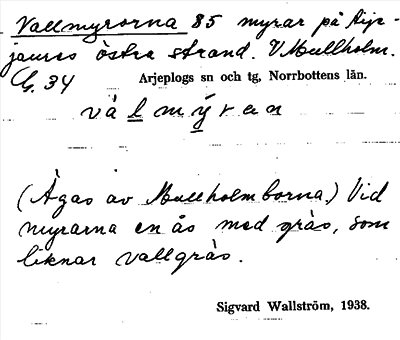 Vallmyrorna 85 myrar på Aije-
jaures östra strand. V Mullholm.
G. 34 Arjeplogs sn och tg, Norrbottens län.
vȧl̲my̲ran
(Ägas av Mullholmborna.) Vid
myrarna en ås med gräs, som
liknar vallgräs.
Sigvard Wallström, 1938.